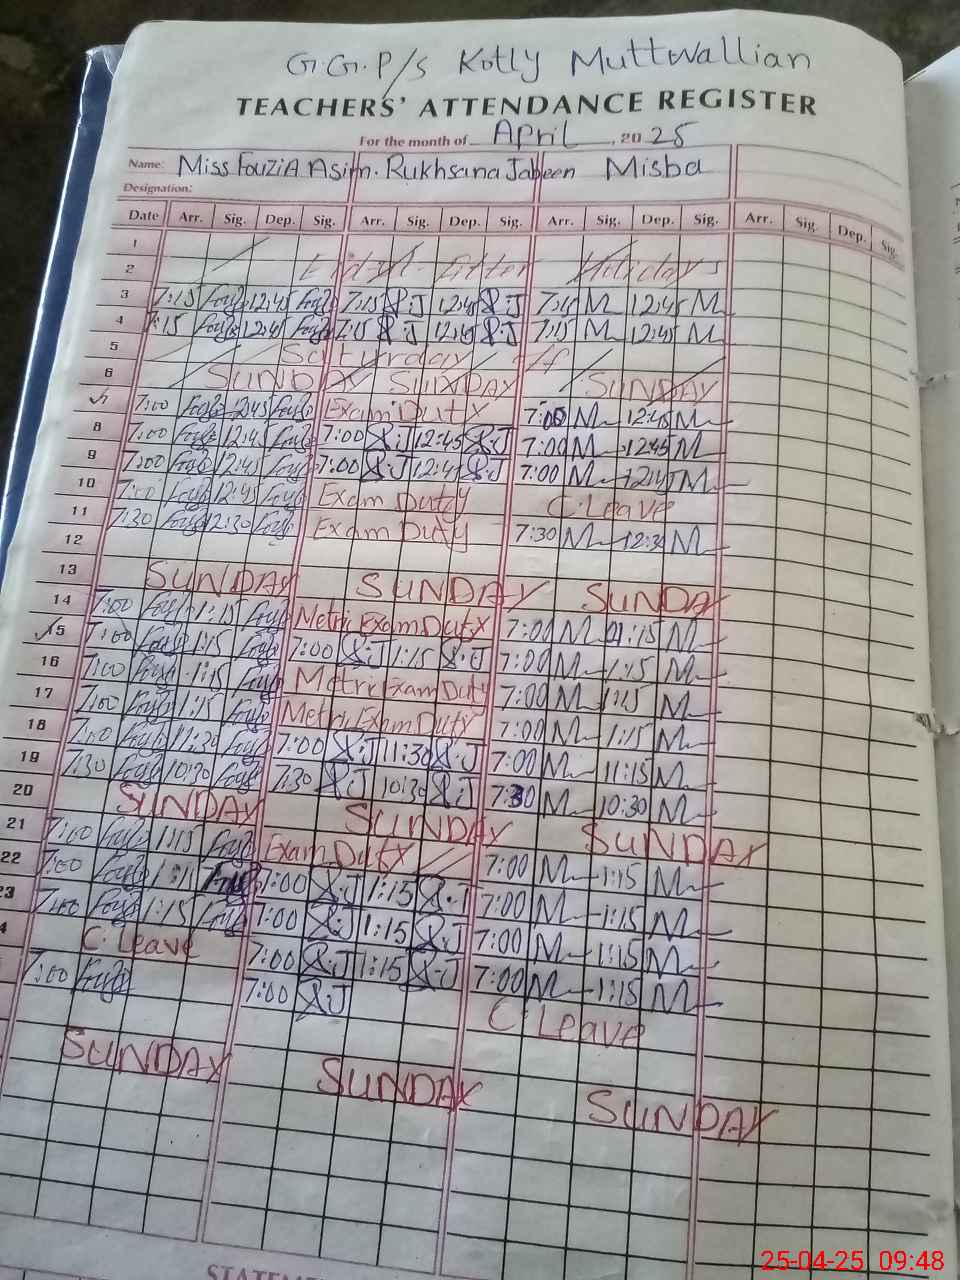 G.G.P/S Kotly Muttwallian
TEACHERS' ATTENDANCE REGISTER
For the month of April, 2025
Name: Miss Fouzia Asim. Rukhsana Jabeen Misba
Designation:
Date Arr. Sig. Dep. Sig. Arr. Sig. Dep. Sig. Arr. Sig. Dep. Sig. Arr. Sig. Dep. Sig.
1
2 Holidays
3 7:15 12:45 7:15 R.J 12:45 R.J 7:15 M 12:45 M
4 7:15 12:45 7:15 R.J 12:45 R.J 7:15 M 12:45 M
5 Saturday off
6 SUNDAY SUNDAY SUNDAY
7 7:00 12:45 Exam Duty 7:00 M 12:45 M
8 7:00 12:45 7:00 R.J 12:45 R.J 7:00 M 12:45 M
9 7:00 12:45 7:00 R.J 12:45 R.J 7:00 M 12:45 M
10 7:00 12:45 Exam Duty C.Leave
11 7:30 12:30 Exam Duty 7:30 M 12:30 M
12
13 SUNDAY SUNDAY SUNDAY
14 7:00 1:15 Metric Exam Duty 7:00 M 1:15 M
15 7:00 1:15 7:00 R.J 1:15 R.J 7:00 M 1:15 M
16 7:00 1:15 Metric Exam Duty 7:00 M 1:15 M
17 7:00 1:15 Metric Exam Duty 7:00 M 1:15 M
18 7:00 11:30 7:00 R.J 11:30 R.J 7:00 M 11:15 M
19 7:30 10:30 7:30 R.J 10:30 R.J 7:30 M 10:30 M
20 SUNDAY SUNDAY SUNDAY
21 7:00 1:15 Exam Duty 7:00 M 1:15 M
22 7:00 1:15 7:00 R.J 1:15 R.J 7:00 M 1:15 M
23 7:00 1:15 7:00 R.J 1:15 R.J 7:00 M 1:15 M
4 C.Leave 7:00 R.J 1:15 R.J 7:00 M 1:15 M
7:00 7:00 R.J C.Leave
SUNDAY SUNDAY SUNDAY
25-04-25 09:48